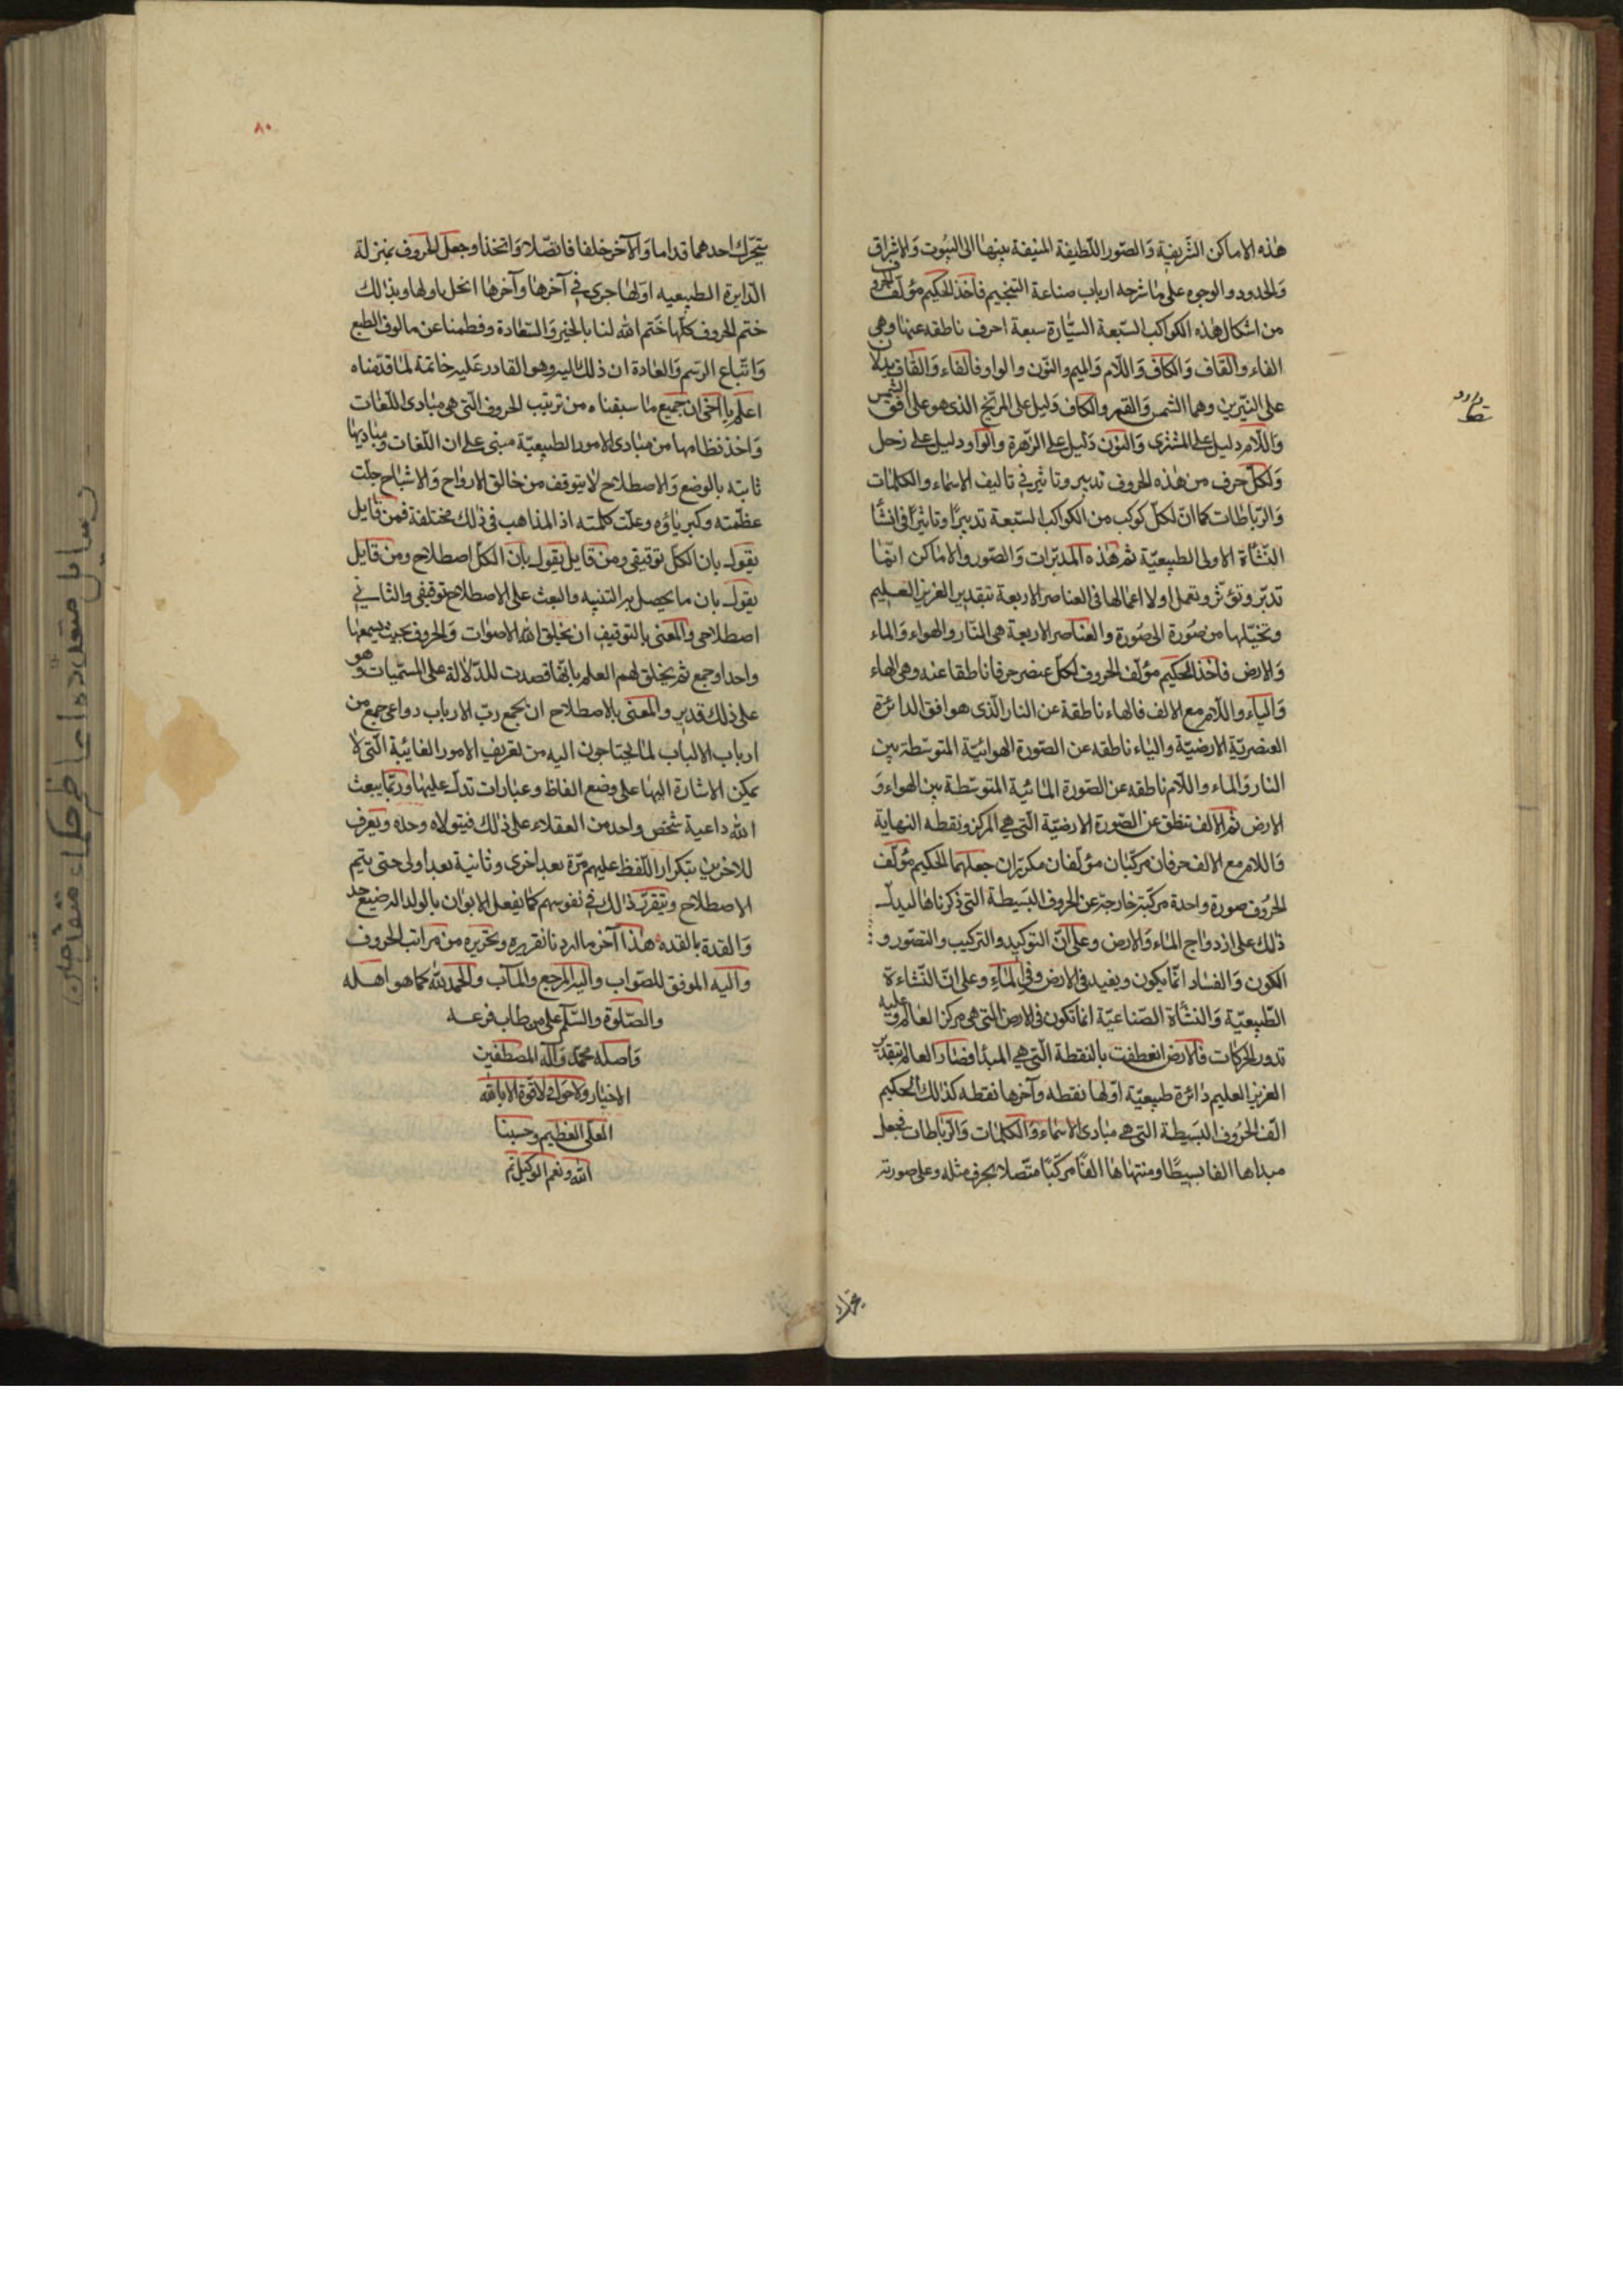 هذه الاماكن الشريفة والصور اللطيفة المنيفة بينها الى البيوت والاشراق
والحدود والوجوه على ما شرحه ارباب صناعة التنجيم فاخذ الحكيم مؤلف الحروف
من اشكال هذه الكواكب السبعة السيارة سبعة احرف ناطقه عنها وهى
الفاء والقاف والكاف واللام والميم والنون والواو فالفاء والقاف يدلان
على النيرين وهما الشمس والقمر والكاف دليل على المريخ الذى هو على افق الشمس
واللام دليل على المشترى والنون دليل على الزهرة والواو دليل على زحل
ولكل حرف من هذه الحروف تدبير وتاثير فى تاليف الاسماء والكلمات
والرباطات كما ان لكل كوكب من الكواكب السبعة تدبيرا وتاثيرا فى انشا
النشأة الاولى الطبيعية ثم هذه المدبرات والصور والاماكن انما
تدبر وتؤثر وتعمل اولا اعمالها فى العناصر الاربعة بتقدير العزيز العليم
من صورة الى صورة والعناصر الاربعة هى النار والهواء والماء
والارض فاخذ الحكيم مؤلف الحروف لكل عنصر حرفا ناطقا عنه وهى الهاء
والياء واللام مع الالف فالهاء ناطقة عن النار الذى هو افق الدائرة
العنصرية الارضية والياء ناطقه عن الصورة الهوائية المتوسطة بين
النار والماء واللام ناطقه عن الصورة المائية المتوسطة بين الهواء و
الارض ثم الالف تنطق عن الصورة الارضية التى هى المركز ونقطه النهاية
واللام مع الالف حرفان مركبان مؤلفان مكرران جعلهما الحكيم مؤلف
الحروف صورة واحدة مركبة خارجة عن الحروف البسيطة التى ذكرناها ليدل
ذلك على ازدواج الماء والارض وعلى ان التوكيد والتركيب والتصور و
الكون والفساد انما يكون ويفيد فى الارض وفى الماء وعلى ان النشاءة
الطبيعية والنشأة الصناعية انما تكون فى الارض التى هى مركز العالم وعليه
تدور الحركات فالارض انعطفت بالنقطة التى هى المبدا فصار العالم بتقدير
العزيز العليم دائرة طبيعية اولها نقطه وآخرها نقطه كذلك الحكيم
الف الحروف البسيطة التى هى مبادى الاسماء والكلمات والرباطات فجعل
مبداها الفا بسيطا ومنتهاها الفا مركبا متصلا بحرف مثله وعلى صورته
٨٠
يتحرك احدهما قداما والآخر خلفا فاتصلا واتخذا وجعل الحروف بمنزلة
الدايرة الطبيعيه اولها جرى فى آخرها وآخرها باولها وبذلك
ختم الحروف كلها ختم الله لنا بالخير والسعادة وفطمنا عن مالوف الطبع
واتباع الرسم والعادة ان ذلك اليه وهو القادر عليه خاتمة لما قدمناه
اعلم يا اخى ان جميع ما سبقناه من ترتيب الحروف التى هى مبادى اللغات
واخذ نظامها من مبادى الامور الطبيعية مبنى على ان اللغات ومباديها
ثابته بالوضع والاصطلاح لا بتوقف من خالق الارواح والاشباح جلت
عظمته وكبرياؤه وعلت كلمته اذ المذاهب فى ذلك مختلفة فمن قايل
يقول بان الكل توقيفى ومن قايل يقول بان الكل اصطلاح ومن قايل
يقول بان ما يحصل به التنبيه والبعث على الاصطلاح توقيفى والثانى
اصطلاحى والمعنى بالتوقيف ان يخلق الله الاصوات والحروف بحيث يسمعها
واحد او جمع ثم يخلق لهم العلم بانها قصدت للدلالة على المسميات وهو
على ذلك قدير والمعنى بالاصطلاح ان يجمع رب الارباب دواعى جمع من
ارباب الالباب لما يحتاجون اليه من تعريف الامور الغائبة التى لا
يمكن الاشارة اليها على وضع الفاظ وعبارات تدل عليها وربما يبعث
الله داعية شخص واحد من العقلاء على ذلك فيتولاه وحده ويعرف
للاخرين بتكرار اللفظ عليهم مرة بعد اخرى وثانية بعد اولى حتى يتم
الاصطلاح ويتقرر ذلك فى نفوسهم كما يفعل الابوان بالولد الرضيع
هذا آخر ما اردنا تقريره وتحريره من مراتب الحروف
واليه الموفق للصواب واليه المرجع والمآب والحمد لله كما هو اهله
والصلوة والسلم على من طاب فرعه
واصله محمد وآله المصطفين
الاخيار ولا حول ولا قوة الا بالله
العلى العظيم وحسبنا
الله ونعم الوكيل تم